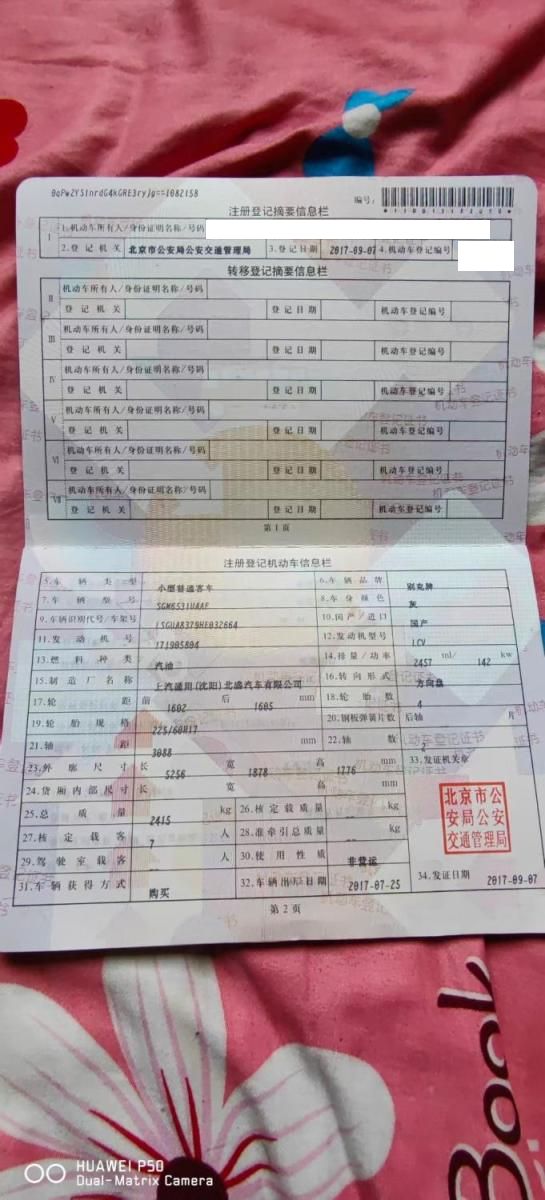 0qPw2YS1nrdG4kGRE3ryjg==1082158
编号:
注册登记摘要信息栏
I 1.机动车所有人/身份证明名称/号码
2.登记机关 北京市公安局公安交通管理局 3.登记日期 2017-09-07 4.机动车登记编号
转移登记摘要信息栏
II 机动车所有人/身份证明名称/号码
登记机关 登记日期 机动车登记编号
III 机动车所有人/身份证明名称/号码
登记机关 登记日期 机动车登记编号
IV 机动车所有人/身份证明名称/号码
登记机关 登记日期 机动车登记编号
V 机动车所有人/身份证明名称/号码
登记机关 登记日期 机动车登记编号
VI 机动车所有人/身份证明名称/号码
登记机关 登记日期 机动车登记编号
VII 机动车所有人/身份证明名称/号码
登记机关 登记日期 机动车登记编号
第1页
注册登记机动车信息栏
5.车辆类型 小型普通客车 6.车辆品牌 别克牌
7.车辆型号 SGM6531UAAF 8.车身颜色 灰
9.车辆识别代号/车架号 LSGUA8379HE032664 10.国产/进口 国产
11.发动机号 171905804 12.发动机型号 LCV
13.燃料种类 汽油 14.排量/功率 2457 ml/ 142 kw
15.制造厂名称 上汽通用(沈阳)北盛汽车有限公司 16.转向形式 方向盘
17.轮距 前 1602 后 1605 mm 18.轮胎数 4
19.轮胎规格 225/60R17 20.钢板弹簧片数 后轴 片
21.轴距 3088 mm 22.轴数 2
23.外廓尺寸 长 5256 宽 1878 高 1776 mm 33.发证机关章
24.货厢内部尺寸 长 宽 高 mm
25.总质量 2415 kg 26.核定载质量 kg
27.核定载客 7 人 28.准牵引总质量 kg
29.驾驶室载客 人 30.使用性质 非营运
31.车辆获得方式 购买 32.车辆出厂日期 2017-07-25 34.发证日期 2017-09-07
北京市公
安局公安
交通管理局
第2页
Book
HUAWEI P50
Dual-Matrix Camera